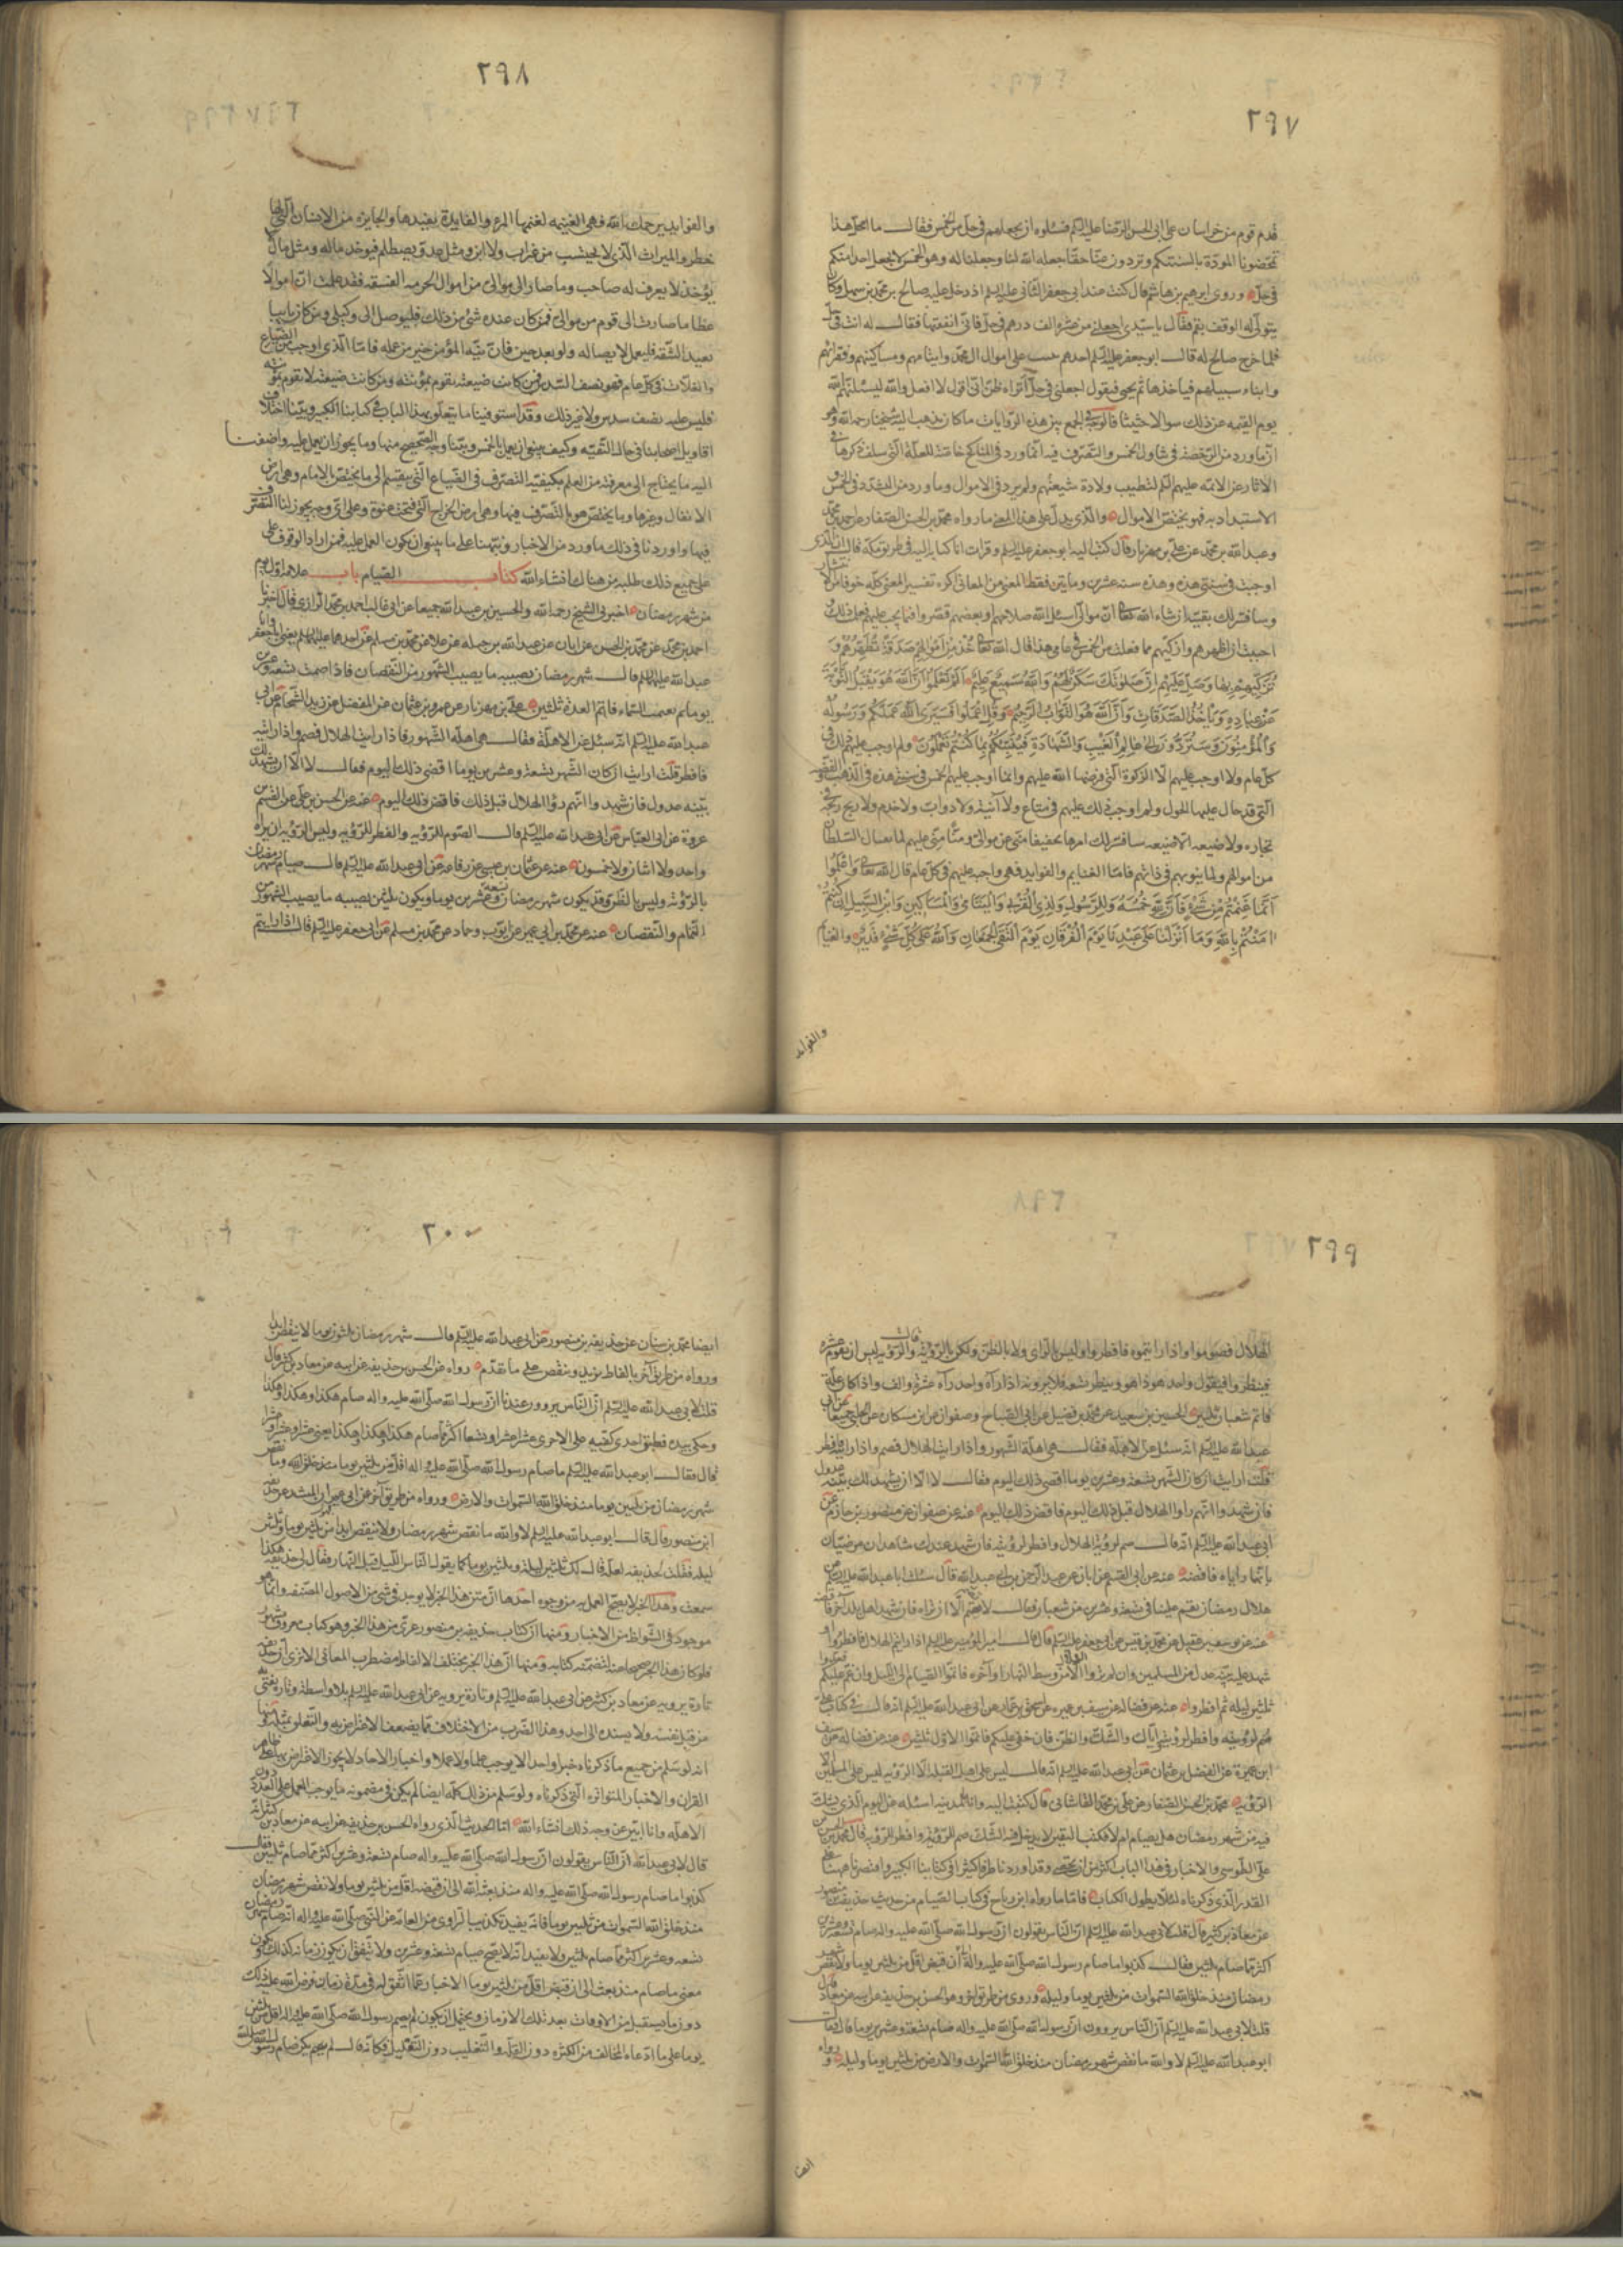 ٢٩٧
قدم قوم من خراسان على ابى الحسن الرضا عليه السلم فسئلوه ان يجعلهم فى حل من الخمس فقال ما امحل هذا
تمحضونا المودة بالسنتكم وتزدون عنا حقا جعله الله لنا وجعلنا له وهو الخمس لا نجعل احدا منكم
فى حل وروى ابرهيم بن هاشم قال كنت عند ابى جعفر الثانى عليه السلم اذ دخل عليه صالح بن محمد بن سهل وكان
يتولى له الوقف بقم فقال يا سيدى اجعلنى من عشرة الف درهم فى حل فانى انفقتها فقال له انت فى حل
فلما خرج صالح له قال ابو جعفر عليه السلم احدهم يثب على اموال ال محمد وايتامهم ومساكينهم وفقرائهم
وابناء سبيلهم فياخذها ثم يجئ فيقول اجعلنى فى حل اتراه ظن انى اقول لا افعل والله ليسئلنهم الله
يوم القيمه عن ذلك سوالا حثيثا فالوجه فى الجمع بين هذه الروايات ما كان يذهب اليه شيخنا رحمه الله وهو
ان ما ورد من الرخصة فى تناول الخمس والتصرف فيه انما ورد فى المناكح خاصة للعلة التى سلف ذكرها فى
الاثار عن الائمه عليهم السلم لتطيب ولادة شيعتهم ولم يرد فى الاموال وما ورد من التشدد فى الخمس و
الاستبداد به فهو يختص الاموال والذى يدل على هذا المعنى ما رواه محمد بن الحسن الصفار عن احمد بن محمد
وعبد الله بن محمد عن على بن مهزيار قال كتب اليه ابو جعفر عليه السلم وقرات انا كتابه اليه فى طريق مكة قال ان الذى
اوجبت فى سنتى هذه وهذه سنه عشرين ومايتين فقط لمعنى من المعانى اكره تفسير المعنى كله خوفا من الانتشار
وسافسر لك بقيته ان شاء الله تعالى ان موالى اسئل الله صلاحهم او بعضهم قصروا فيما يجب عليهم فعلمت ذلك و
احببت ان اطهرهم وازكيهم بما فعلت من الخمس فى عامى هذا قال الله تعالى خذ من اموالهم صدقة تطهرهم و
تزكيهم بها وصل عليهم ان صلوتك سكن لهم والله سميع عليم الم تعلموا ان الله هو يقبل التوبة
عن عباده وياخذ الصدقات وان الله هو التواب الرحيم وقل اعملوا فسيرى الله عملكم ورسوله
والمؤمنون وستردون الى عالم الغيب والشهادة فينبئكم بما كنتم تعملون ولم اوجب عليهم ذلك فى
كل عام ولا اوجب عليهم الا الزكوة التى فرضها الله عليهم وانما اوجب عليهم الخمس فى سنتى هذه فى الذهب والفضه
التى قد حال عليها الحول ولم اوجب ذلك عليهم فى متاع ولا انية ولا دواب ولا خدم ولا ربح ربحه فى
تجاره ولا ضيعه الا ضيعه سافسر لك امرها تخفيفا منى عن موالى ومنا منى عليهم لما يغتال السلطان
من اموالهم ولما ينوبهم فى ذاتهم فاما الغنايم والفوايد فهى واجبه عليهم فى كل عام قال الله تعالى واعلموا
انما غنمتم من شئ فان لله خمسه وللرسول ولذى القربى واليتامى والمساكين وابن السبيل ان كنتم
امنتم بالله وما انزلنا على عبدنا يوم الفرقان يوم التقى الجمعان والله على كل شئ قدير والغنايم
والفوايد
٢٩٨
والفوايد يرحمك الله فهى الغنيمه يغنمها المرء والفايدة يفيدها والجايزه من الانسان التى لها
خطر والميراث الذى لا يحتسب من غير اب ولا ابن ومثل عدو يصطلم فيوخذ ماله ومثل مال
يؤخذ لا يعرف له صاحب وما صار الى موالى من اموال الخرميه الفسقه فقد علمت ان اموالا
عظاما صارت الى قوم من موالى فمن كان عنده شئ من ذلك فليوصل الى وكيلى ومن كان نائيا
بعيد الشقة فليعمل لايصاله ولو بعد حين فان نية المؤمن خير من عمله فاما الذى اوجب من الضياع
والغلات فى كل عام فهو نصف السدس ممن كانت ضيعته تقوم بمؤنته ومن كانت ضيعته لا تقوم بمؤنته
فليس عليه نصف سدس ولا غير ذلك وقد استوفينا ما يتعلق بهذا الباب فى كتابنا الكبير وبينا اختلاف
اقاويل اصحابنا فى حال التقيه وكيف ينبغى ان يعمل بالخمس وبينا وجه الصحيح منها وما يجوز ان يعمل عليه واضفنا
اليه ما يحتاج الى معرفته من العلم بكيفيه التصرف فى الضياع التى ينقسم الى ما يختص الامام وهى ارض
الانفال وغيرها وما يختص هو بالتصرف فيها وهى ارض الخراج التى فتحت عنوة وعلى اى وجه يجوز لنا التصرف
فيها واوردنا فى ذلك ما ورد من الاخبار ونبهنا على ما ينبغى ان يكون العمل عليه فمن اراد الوقوف على
على جميع ذلك طلبه من هناك انشاء الله كتاب الصيام باب علامة اول يوم
من شهر رمضان اخبرنى الشيخ رحمه الله والحسين بن عبيد الله جميعا عن ابى غالب احمد بن محمد الزرارى قال اخبرنا
احمد بن محمد عن محمد بن الحسن عن ابان عن عبد الله بن جبله عن علا عن محمد بن مسلم عن احدهما عليهما السلم يعنى ابا جعفر وابا
عبد الله عليهما السلم قال شهر رمضان يصيبه ما يصيب الشهور من النقصان فاذا صمت تسعه وعشرين
يوما ثم تغيمت السماء فاتم العدة ثلثين على بن مهزيار عن عمرو بن عثمان عن المفضل عن زيد الشحام عن ابى
عبد الله عليه السلم انه سئل عن الاهلة فقال هى اهلة الشهور فاذا رايت الهلال فصم واذا رايته
فافطر قلت ارايت ان كان الشهر تسعة وعشرين يوما اقضى ذلك اليوم فقال لا الا ان يشهد لك
بينه عدول فان شهدوا انهم راوا الهلال قبل ذلك فاقض ذلك اليوم عنه عن الحسن بن على عن القسم بن
عروة عن ابى العباس عن ابى عبد الله عليه السلم قال الصوم للرؤيه والفطر للرؤيه وليس الرؤيه ان يراه
واحد ولا اثنان ولا خمسون عنه عن عثمان بن عيسى عن رفاعه عن ابى عبد الله عليه السلم قال صيام شهر رمضان
بالرؤية وليس بالظن وقد يكون شهر رمضان تسعة وعشرين يوما ويكون ثلثين يصيبه ما يصيب الشهور من
التمام والنقصان عنه عن محمد بن ابى عمير عن ايوب وحماد عن محمد بن مسلم عن ابى جعفر عليه السلم قال اذا رايتم
٢٩٩
الهلال فصوموا واذا رايتموه فافطروا وليس بالراى ولا بالظن ولكن بالرؤية قال والرؤيه ليس ان يقوم عشرة
فينظروا فيقول واحد هو ذا هو وينظر تسعه فلا يرونه اذا رآه واحد رآه عشرة والف واذا كان علة
فاتم شعبان ثلثين الحسين بن سعيد عن محمد بن فضيل عن ابى الصباح وصفوان عن ابن مسكان عن الحلبى جميعا عن ابى
عبد الله عليه السلم انه سئل عن الاهله فقال هى اهلة الشهور واذا رايت الهلال فصم واذا رايته فافطر
قلت ارايت ان كان الشهر تسعة وعشرين يوما اقضى ذلك اليوم فقال لا الا ان يشهد لك بينه عدول
فان شهدوا انهم راوا الهلال قبل ذلك اليوم فاقض ذلك اليوم عنه عن صفوان عن منصور بن حازم عن
ابى عبد الله عليه السلم انه قال صم لرؤية الهلال وافطر لرؤيته فان شهد عندك شاهدان مرضيان
بانهما راياه فاقضه عنه عن ابى القسم عن ابان عن عبد الرحمن بن ابى عبد الله قال سئلت ابا عبد الله عليه السلم عن
هلال رمضان يغم علينا فى تسعة وعشرين من شعبان فقال لا تصم الا ان تراه فان شهد اهل بلد آخر فاقضه
عنه عن يوسف بن عقيل عن محمد بن قيس عن ابى جعفر عليه السلم قال قال امير المؤمنين عليه السلم اذا رايتم الهلال فافطروا او
شهد عليه بينة عدل من المسلمين وان لم تروا الهلال الا من وسط النهار او آخره فاتموا الصيام الى الليل وان غم عليكم فعدوا
ثلثين ليلة ثم افطروا عنه عن فضاله عن سيف بن عميره عن اسحق بن عمار عن ابى عبد الله عليه السلم انه قال فى كتاب على
صم لرؤيته وافطر لرؤيته واياك والشك والظن فان خفى عليكم فاتموا الاول ثلثين عنه عن فضاله عن سيف
ابن عميرة عن الفضيل بن عثمان عن ابى عبد الله عليه السلم انه قال ليس على اهل القبلة الا الرؤيه ليس على المسلمين الا
الرؤيه محمد بن الحسن الصفار عن على بن محمد القاشانى قال كتبت اليه وانا بالمدينه اسئله عن اليوم الذى يشك
فيه من شهر رمضان هل يصام ام لا فكتب اليقين لا يدخل فيه الشك صم للرؤية وافطر للرؤيه قال محمد بن الحسن بن
على الطوسى والاخبار فى هذا الباب اكثر من ان تحصى وقد اوردنا طرفا كثيرا فى كتابنا الكبير واقتصرنا ههنا على
القدر الذى ذكرناه لئلا يطول الكتاب فاما ما رواه ابن رباح فى كتاب الصيام من حديث حذيفة بن منصور
عن معاذ بن كثير قال قلت لابى عبد الله عليه السلم ان الناس يقولون ان رسول الله صلى الله عليه واله صام تسعة وعشرين
اكثر مما صام ثلثين فقال كذبوا ما صام رسول الله صلى الله عليه واله الى ان قبض اقل من ثلثين يوما ولا نقص شهر
رمضان منذ خلق الله السموات من ثلثين يوما وليلة وروى من طريق اخر وهو الحسن بن حذيفه عن ابيه عن معاذ قال
قلت لابى عبد الله عليه السلم ان الناس يروون ان رسول الله صلى الله عليه واله صام تسعة وعشرين يوما قال فقال
ابو عبد الله عليه السلم لا والله ما نقص شهر رمضان منذ خلق الله السموات والارض من ثلثين يوما وليلة و رواه
ايضا
٣٠٠
ايضا محمد بن سنان عن حذيفه بن منصور عن ابى عبد الله عليه السلم قال شهر رمضان ثلثون يوما لا ينقص ابدا
ورواه من طريق آخر بالفاظ يزيد وينقص على ما تقدم رواه عن الحسن بن حذيفه عن ابيه عن معاذ بن كثير قال
قلت لابى عبد الله عليه السلم ان الناس يروون عندنا ان رسول الله صلى الله عليه واله صام هكذا وهكذا وهكذا
وحكى بيده فطبق احدى كفيه على الاخرى عشرا وعشرا وتسعا اكثر مما صام هكذا وهكذا وهكذا يعنى عشرا وعشرا وعشرا
قال فقال ابو عبد الله عليه السلم ما صام رسول الله صلى الله عليه واله اقل من ثلثين يوما منذ خلق الله وما نقص
شهر رمضان من ثلثين يوما منذ خلق الله السموات والارض ورواه من طريق آخر عن ابى عمران المنشد عن حذيفه
ابن منصور قال قال ابو عبد الله عليه السلم لا والله ما نقص شهر رمضان ولا ينقص ابدا من ثلثين يوما وثلثين
ليله فقلت لحذيفه لعله قال لك ثلثين ليلة وثلثين يوما كما يقول الناس الليل قبل النهار فقال لى حذيفه هكذا
سمعت وهذا الخبر لا يصح العمل به من وجوه احدها ان متن هذا الخبر لا يوجد فى شئ من الاصول المصنفه وانما هو
موجود فى الشواذ من الاخبار ومنها ان كتاب حذيفه بن منصور عرى من هذا الخبر وهو كتاب معروف مشهور
فلو كان هذا الخبر صحيحا عنه لضمنه كتابه ومنها ان هذا الخبر مختلف الالفاظ مضطرب المعانى الا ترى ان حذيفه
تارة يرويه عن معاذ بن كثير عن ابى عبد الله عليه السلم وتارة يرويه عن ابى عبد الله عليه السلم بلا واسطة وتارة يفتى به
من قبل نفسه ولا يسنده الى احد وهذا الضرب من الاختلاف مما يضعف الاعتراض به والتعلق بمثله ومنها
انه لو سلم من جميع ما ذكرناه خبرا واحدا لا يوجب علما ولا عملا واخبار الاحاد لا يجوز الاعتراض بها على ظاهر
القران والاخبار المتواتره التى ذكرناه ولو سلم من ذلك كله ايضا لم يكن فى مضمونه ما يوجب العمل على العدد دون
الاهله وانا ابين عن وجه ذلك انشاء الله اما الحديث الذى رواه الحسن بن حذيفه عن ابيه عن معاذ بن كثير انه
قال لابى عبد الله ان الناس يقولون ان رسول الله صلى الله عليه واله صام تسعة وعشرين اكثر مما صام ثلثين فقال
كذبوا ما صام رسول الله صلى الله عليه واله منذ بعثه الله الى ان قبضه اقل من ثلثين يوما ولا نقص شهر رمضان
منذ خلق الله السموات من ثلثين يوما فانه يفيد تكذيب الراوى من العامة عن النبى صلى الله عليه واله انه صام شهر رمضان
تسعه وعشرين اكثر مما صام ثلثين ولا يفيد انه لا يصح صيام تسعة وعشرين ولا يتفق ان يكون زمانه كذلك ويكون
معنى ما صام منذ بعث الى ان قبض اقل من ثلثين يوما الاخبار عما اتفق له فى مدة زمان فرض الله عليه ذلك
دون ما يستقبل من الاوقات بعد تلك الازمان ويحتمل ان يكون لم يصم رسول الله صلى الله عليه واله اقل من ثلثين
يوما على ما ادعاه المخالف من الكثره دون القلة والتغليب دون التقليل فكانه قال لم يكن صام رسول الله